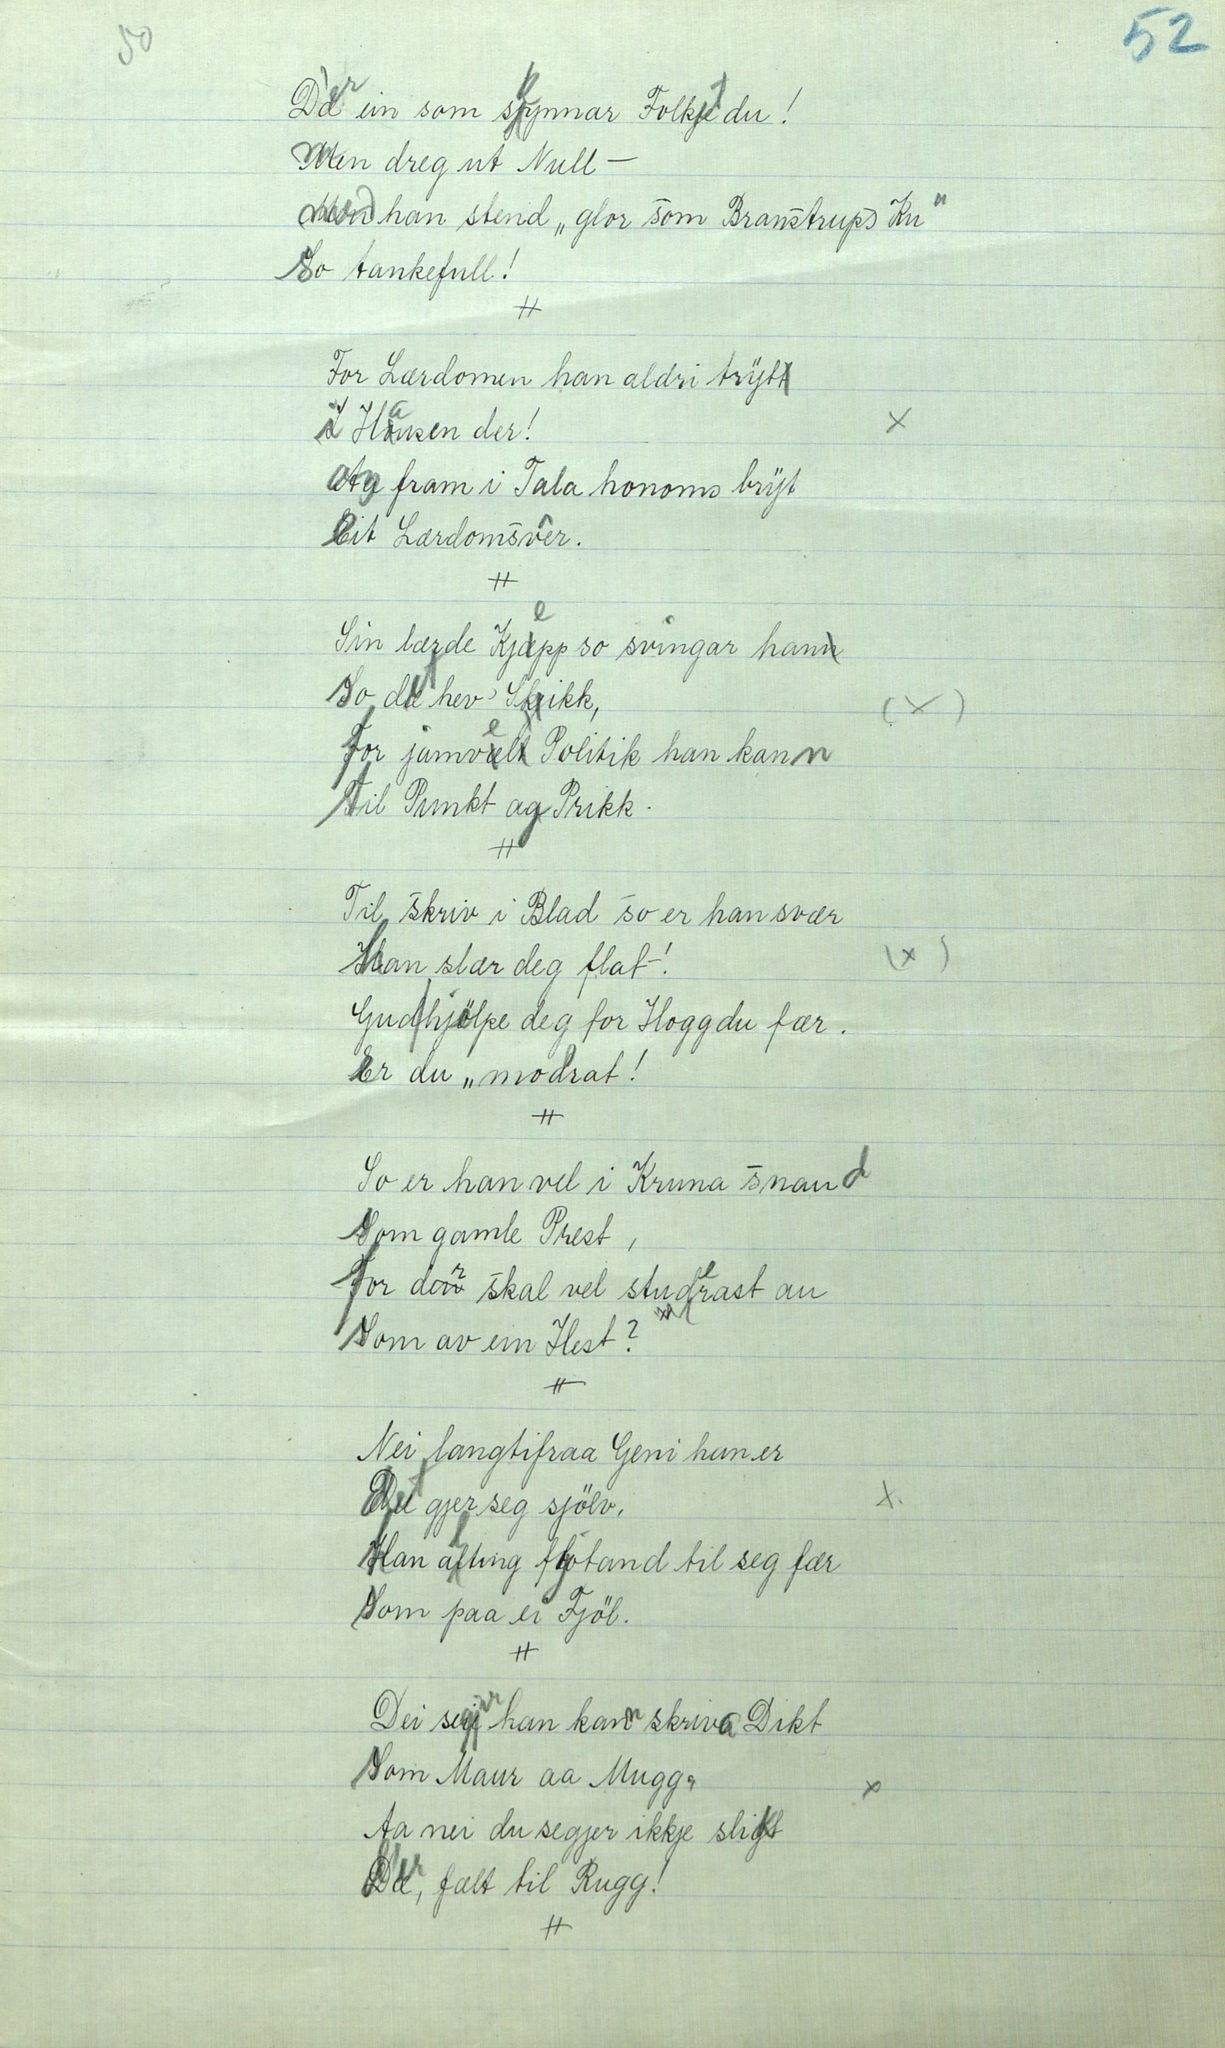 50
52
D'er ein som synnar Folkjet du!
men dreg ut Null —
med han stend „glor som Branstrups Ku"
so tankefull!
#
For Lærdomen han aldri tryt
i Hausen der! x
og fram i Tala honoms bryt
eit Lærdomsver.
#
Sin lærde Kjepp so svingar han
so det hev Skikk, (x)
for jamvel Politik han kann
til Punkt og Prikk.
#
Til skriv i Blad so er han svær
han slær deg flat! (x)
Gud hjölpe deg for Hogg du fær.
er du „modrat!
#
So er han vel i Kruna snaud
som gamle Prest,
for der skal vel studerast au
som av ein Hest?
#
Nei langtifraa Geni han er
det gjer seg sjölv, x.
han alting fljotand til seg fær
som paa ei Fjöl.
#
Dei segjer han kann skriva Dikt
som Maur aa Mugg. x
Aa nei du segjer ikkje slikt
D'er, fælt til Rugg!
#